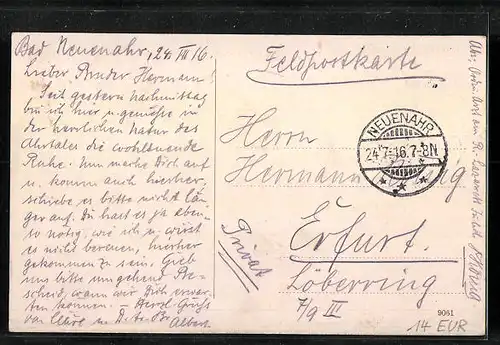 Bad Neuenahr, 24. VII 16.
Lieber Bruder Hermann!
Seit gestern Nachmittag
bin ich hier u. genieße in
der herrlichen Natur des
Ahrtales die wohltuende
Ruhe. Nun mache Dich auf
u. komm auch hierher,
schiebe es bitte nicht län-
ger auf. Du hast es ja eben-
so nötig, wie ich u. wirst
es nicht bereuen, hierher
gekommen zu sein. Gieb
uns bitte umgehend Be-
scheid, wann wir Dich erwar-
ten können. – Herzl. Grüße
von u. D. tr. Br.
Albert
Feldpostkarte
NEUENAHR
24.7.16.7-8N
Herrn
Hermann
Erfurt.
Löberring
7/9 III
Privat
Abs.
9061
14 EUR